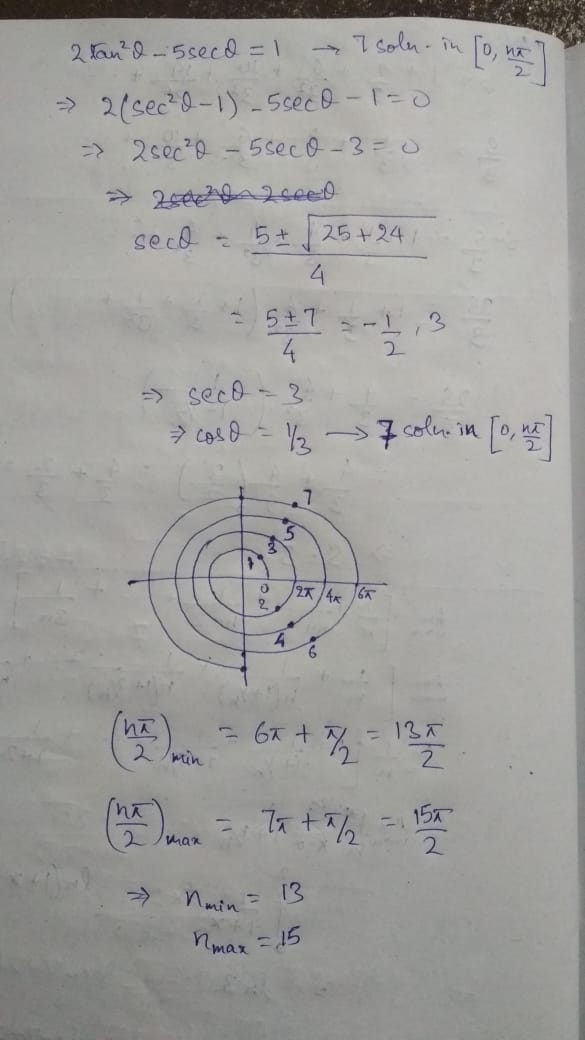 2tan²θ - 5secθ = 1 → 7 soln. in [0, nπ/2]
⇒ 2(sec²θ-1) - 5secθ - 1 = 0
⇒ 2sec²θ - 5secθ - 3 = 0
⇒ 2sec²θ - 2secθ
secθ = 5 ± √25+24 / 4
= 5±7/4 = -1/2, 3
⇒ secθ = 3
⇒ cosθ = 1/3 → 7 soln. in [0, nπ/2]
7
5
3
1
0 2π 4π 6π
2
4
6
(nπ/2)min = 6π + π/2 = 13π/2
(nπ/2)max = 7π + π/2 = 15π/2
⇒ nmin = 13
nmax = 15